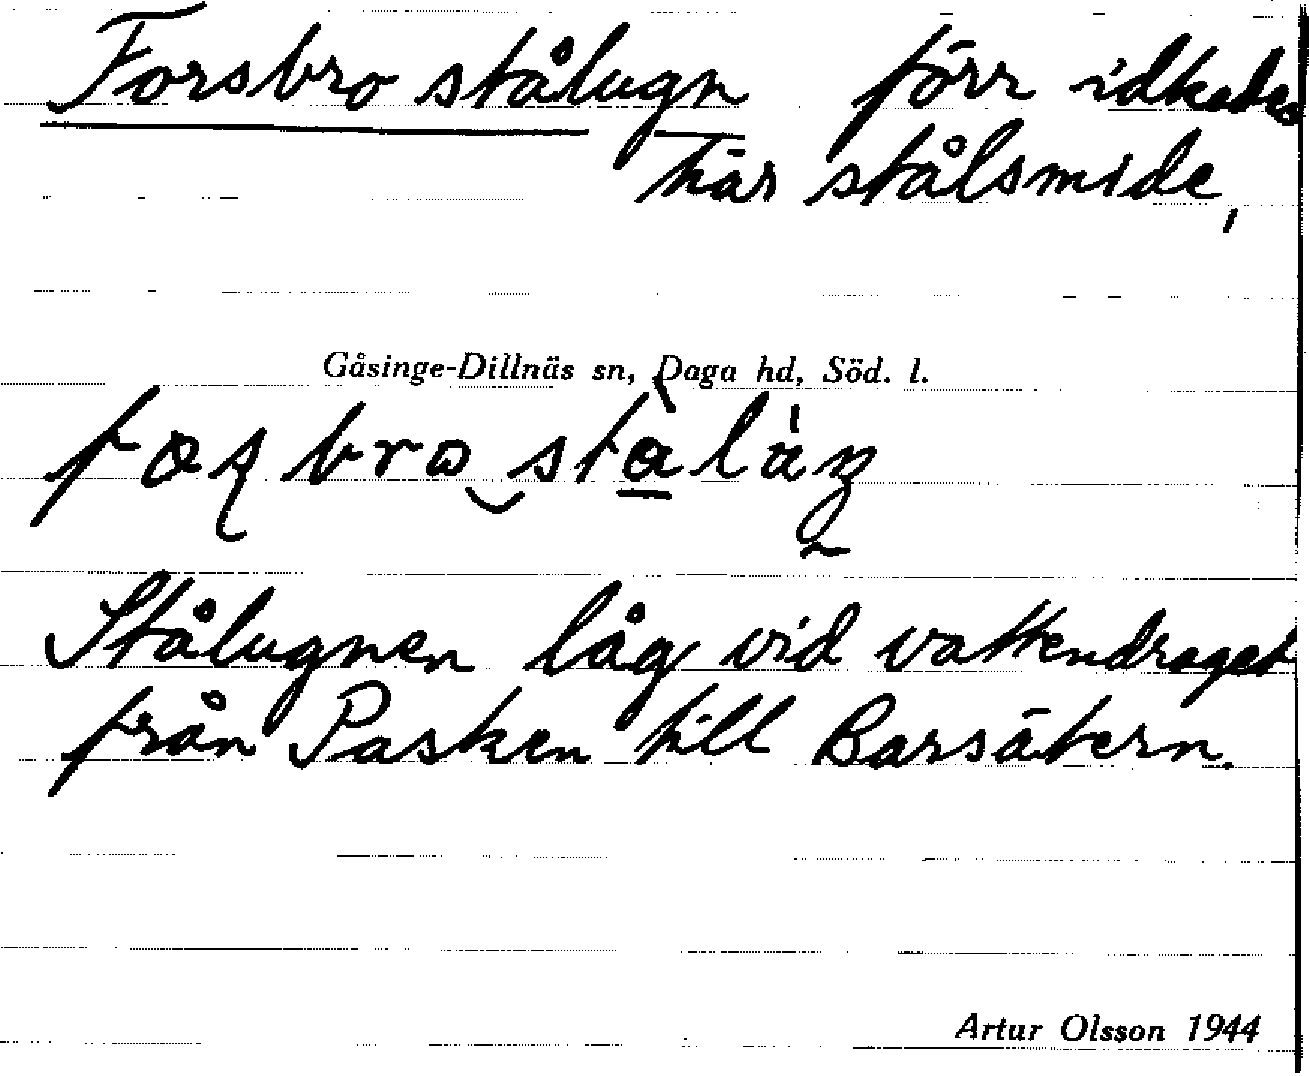 Forsbro stålugn förr idkades
här stålsmide,
Gåsinge-Dillnäs sn, Daga hd, Söd. l.
Stålugnen låg vid vattendraget
från Pasken till Barsätern.
Artur Olsson 1944